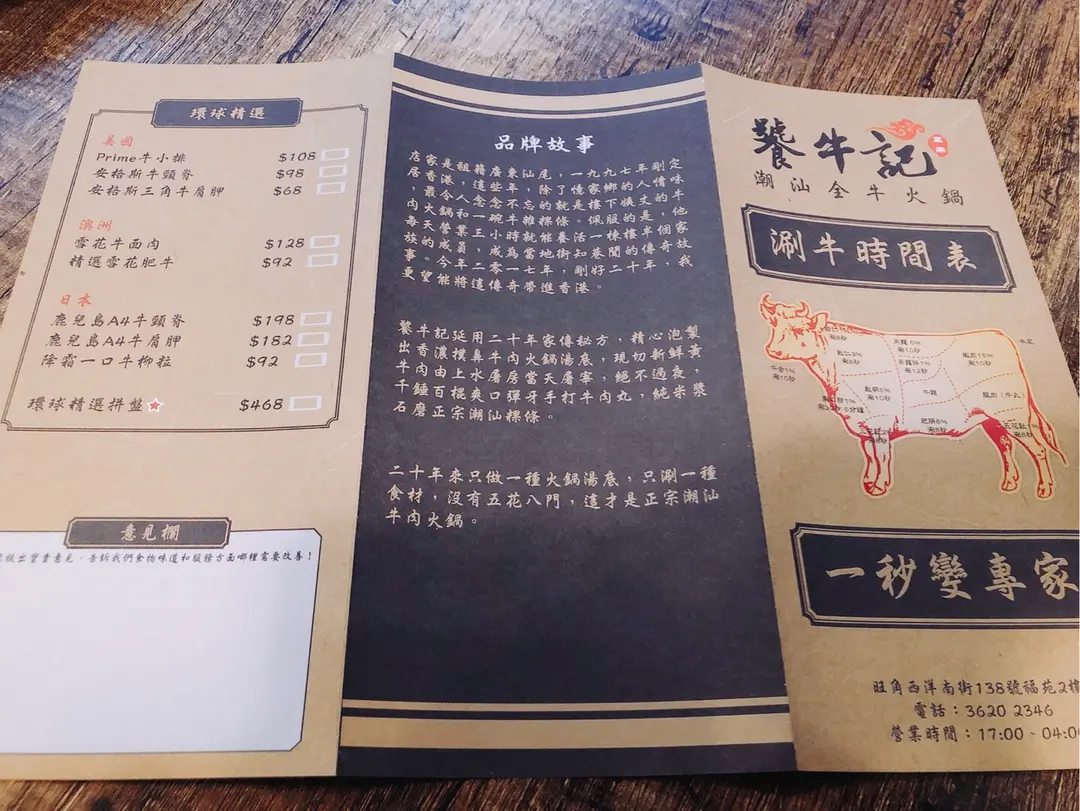 環球精選
美國
Prime牛小排 $108
安格斯牛頸脊 $98
安格斯三角牛肩胛 $68
澳洲
雪花牛面肉 $128
精選雪花肥牛 $92
日本
鹿兒島A4牛頸脊 $198
鹿兒島A4牛肩胛 $182
降霜一口牛柳粒 $92
環球精選拼盤 $468
意見欄
提出寶貴意見，告訴我們食物味道和服務方面哪裡需要改善！
品牌故事
店家是祖籍廣東汕尾，一九九七年剛定
居香港，這些年，除了憶家鄉的人情味
，最令人念念不忘的就是樓下姨丈的牛
肉火鍋和一碗牛雜粿條。佩服的是，他
每天營業三小時就能養活一棟樓半個家
族的成員，成為當地街知巷聞的傳奇故
事。今年二零一七年，剛好二十年，我
更望能將這傳奇帶進香港。
饕牛記延用二十年家傳秘方，精心泡製
出香濃撲鼻牛肉火鍋湯底，現切新鮮黃
牛肉由上水屠房當天屠宰，絕不過夜，
千錘百棍爽口彈牙手打牛肉丸，純米漿
石磨正宗潮汕粿條。
二十年來只做一種火鍋湯底，只涮一種
食材，沒有五花八門，這才是正宗潮汕
牛肉火鍋。
饕牛記
潮汕全牛火鍋
涮牛時間表
牛舌1%
涮10秒
匙仁3%
涮8秒
吊龍5%
涮10秒
吊龍伴1%
涮12秒
匙柄5%
涮10秒
牛雜
肥胼8%
涮8秒
一秒變專家
旺角西洋南街138號福苑2樓
電話：3620 2346
營業時間：17:00 - 04:00